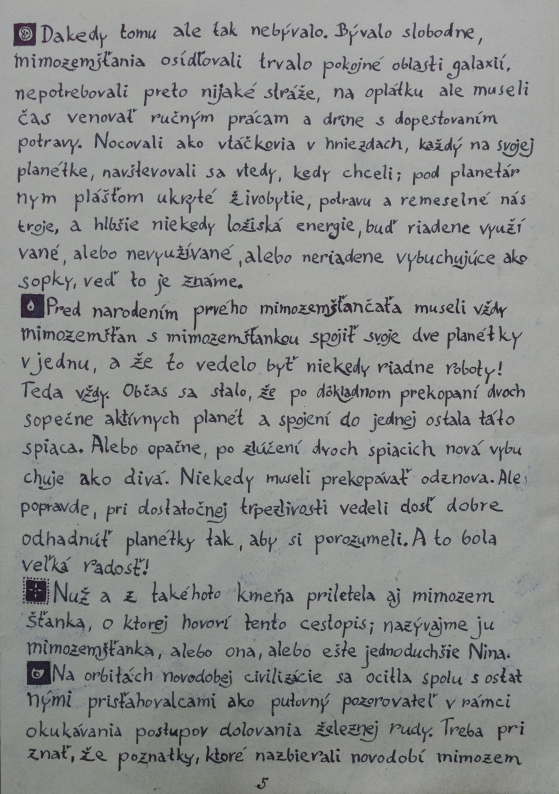 Dakedy tomu ale tak nebývalo. Bývalo slobodne,
mimozemšťania osídľovali trvalo pokojné oblasti galaxií,
nepotrebovali preto nijaké stráže, na oplátku ale museli
čas venovať ručným prácam a drine s dopestovaním
potravy. Nocovali ako vtáčkovia v hniezdach, každý na svojej
planétke, navštevovali sa vtedy, kedy chceli; pod planetár
nym plášťom ukryté živobytie, potravu a remeselné nás
troje, a hlbšie niekedy ložiská energie, buď riadene využí
vané, alebo nevyužívané, alebo neriadene vybuchujúce ako
sopky, veď to je známe.
Pred narodením prvého mimozemšťančaťa museli vždy
mimozemšťan s mimozemšťankou spojiť svoje dve planétky
v jednu, a že to vedelo byť niekedy riadne roboty!
Teda vždy. Občas sa stalo, že po dôkladnom prekopaní dvoch
sopečne aktívnych planét a spojení do jednej ostala táto
spiaca. Alebo opačne, po zlúčení dvoch spiacich nová vybu
chuje ako divá. Niekedy museli prekopávať odznova. Ale
popravde, pri dostatočnej trpezlivosti vedeli dosť dobre
odhadnúť planétky tak, aby si porozumeli. A to bola
veľká radosť!
Nuž a z takéhoto kmeňa priletela aj mimozem
šťanka, o ktorej hovorí tento cestopis; nazývajme ju
mimozemšťanka, alebo ona, alebo ešte jednoduchšie Nina.
Na orbitách novodobej civilizácie sa ocitla spolu s ostat
nými prisťahovalcami ako putovný pozorovateľ v rámci
okukávania postupov dolovania železnej rudy. Treba pri
znať, že poznatky, ktoré nazbierali novodobí mimozem
5